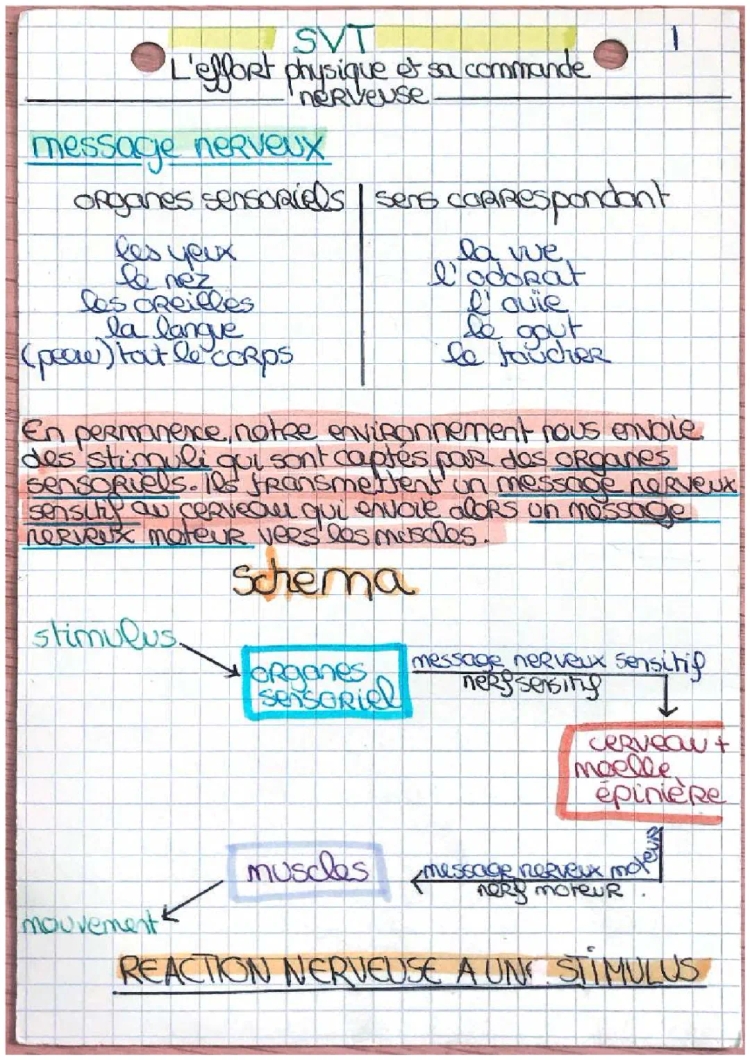 SVT
1
L'effort physique et sa commande
nerveuse
message nerveux
organes sensoriels | sens correspondant
les yeux
la vue
le nez
l'odorat
les oreilles
l'ouïe
la langue
le gout
(peau) tout le corps
le toucher
En permanence, notre environnement nous envoie
des stimuli qui sont captés par des organes
sensoriels. Ils transmettent un message nerveux
sensitif au cerveau qui envoie alors un message
nerveux moteur vers les muscles.
Schema
stimulus
organes
sensoriel
message nerveux sensitif
nerf sensitif
cerveau +
moelle
épinière
message nerveux moteur
nerf moteur.
muscles
mouvement
REACTION NERVEUSE A UNE STIMULUS